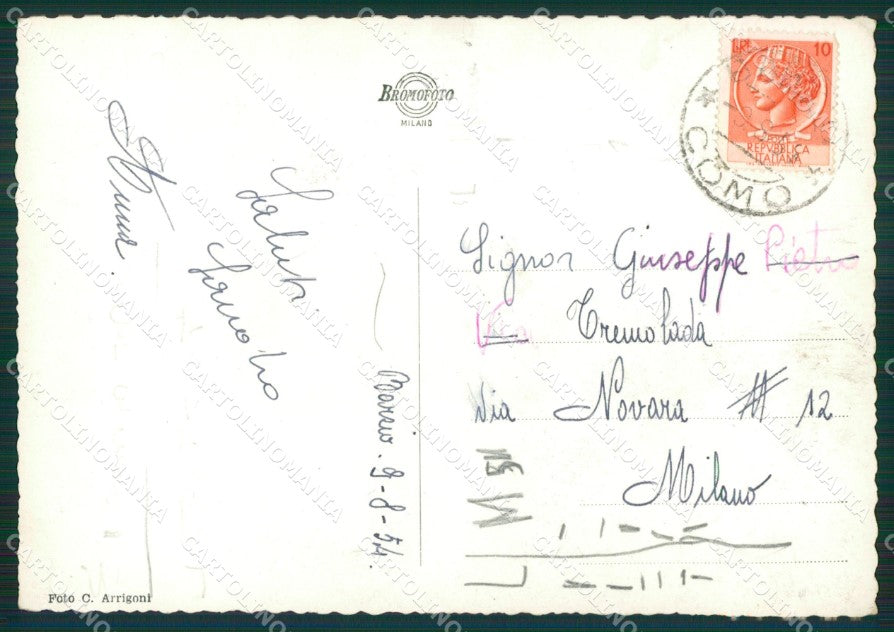 BROMOFOTO
MILANO
GRI 10
REPVBBLICA
ITALIANA
COMO
Anna.
Saluti
Barzio. 9-8-54.
Signor Giuseppe Pietro
Tremolada
via Novara 12
Milano
Foto C. Arrigoni
CARTOLINOMANIA